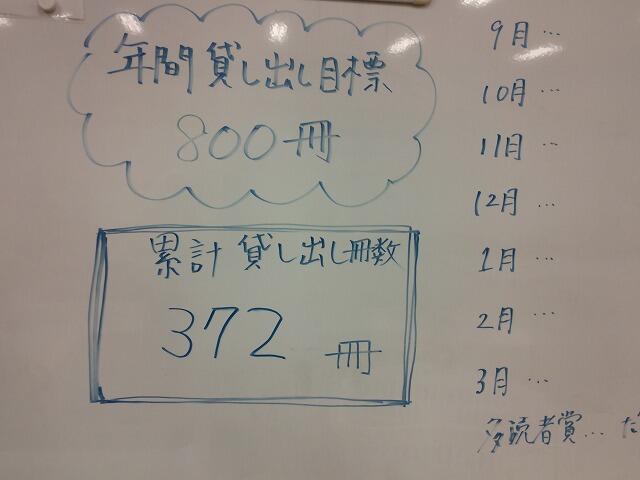 年間貸し出し目標
800冊
累計貸し出し冊数
372冊
9月…
10月…
11月…
12月…
1月…
2月…
3月…
多読者賞…だ